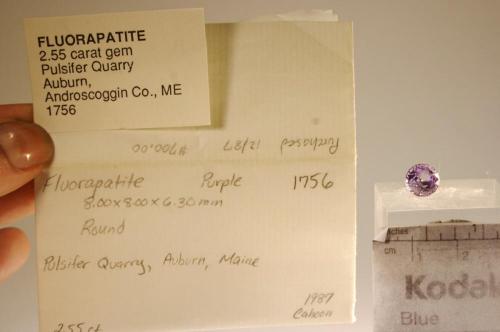 FLUORAPATITE
2.55 carat gem
Pulsifer Quarry
Auburn,
Androscoggin Co., ME
1756
Purchased 12/87 $700.00
Fluorapatite Purple 1756
8.00 x 8.00 x 6.30 mm
Round
Pulsifer Quarry, Auburn, Maine
1987
2.55 ct
inches 1
1 2
Kodak
Blue